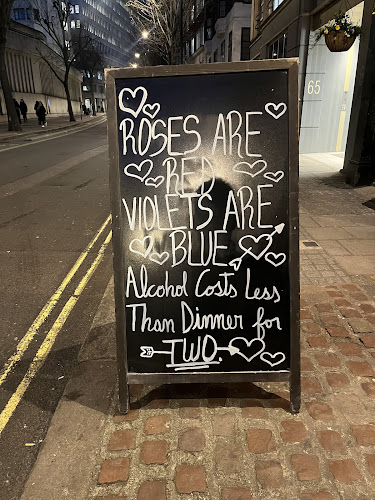 ROSES ARE
RED
VIOLETS ARE
BLUE
Alcohol Costs Less
Than Dinner for
TWO.
65